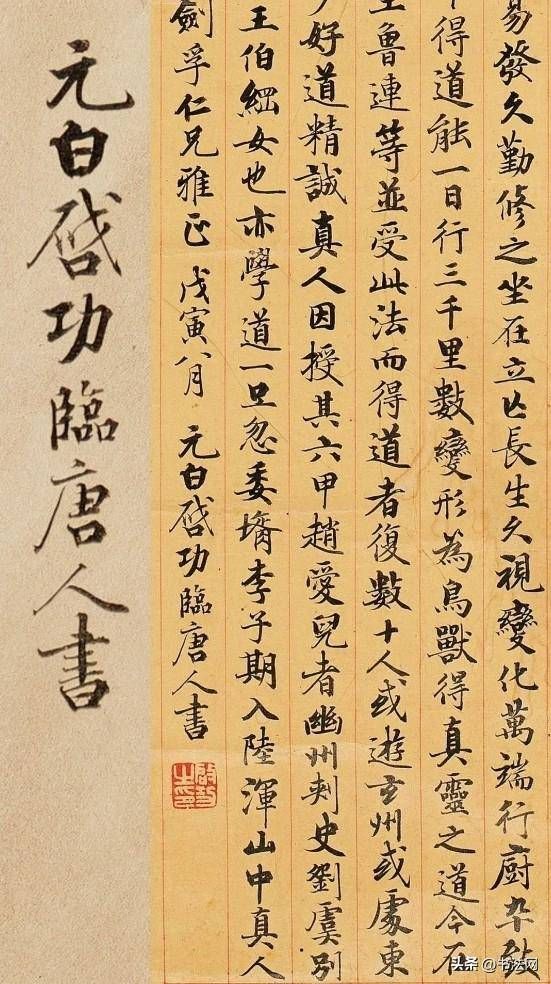 易發久勤修之坐在立亡長生久視變化萬端行廚卒致
得道能一日行三千里數變形為鳥獸得真靈之道今在
王魯連等並受此法而得道者復數十人或遊玄州或處東
好道精誠真人因授其六甲趙愛兒者幽州刺史劉虞別
王伯綱女也亦學道一旦忽委壻李子期入陸渾山中真人
劍孚仁兄雅正 戊寅八月 元白啓功臨唐人書
元白啓功臨唐人書
头条 @书法网